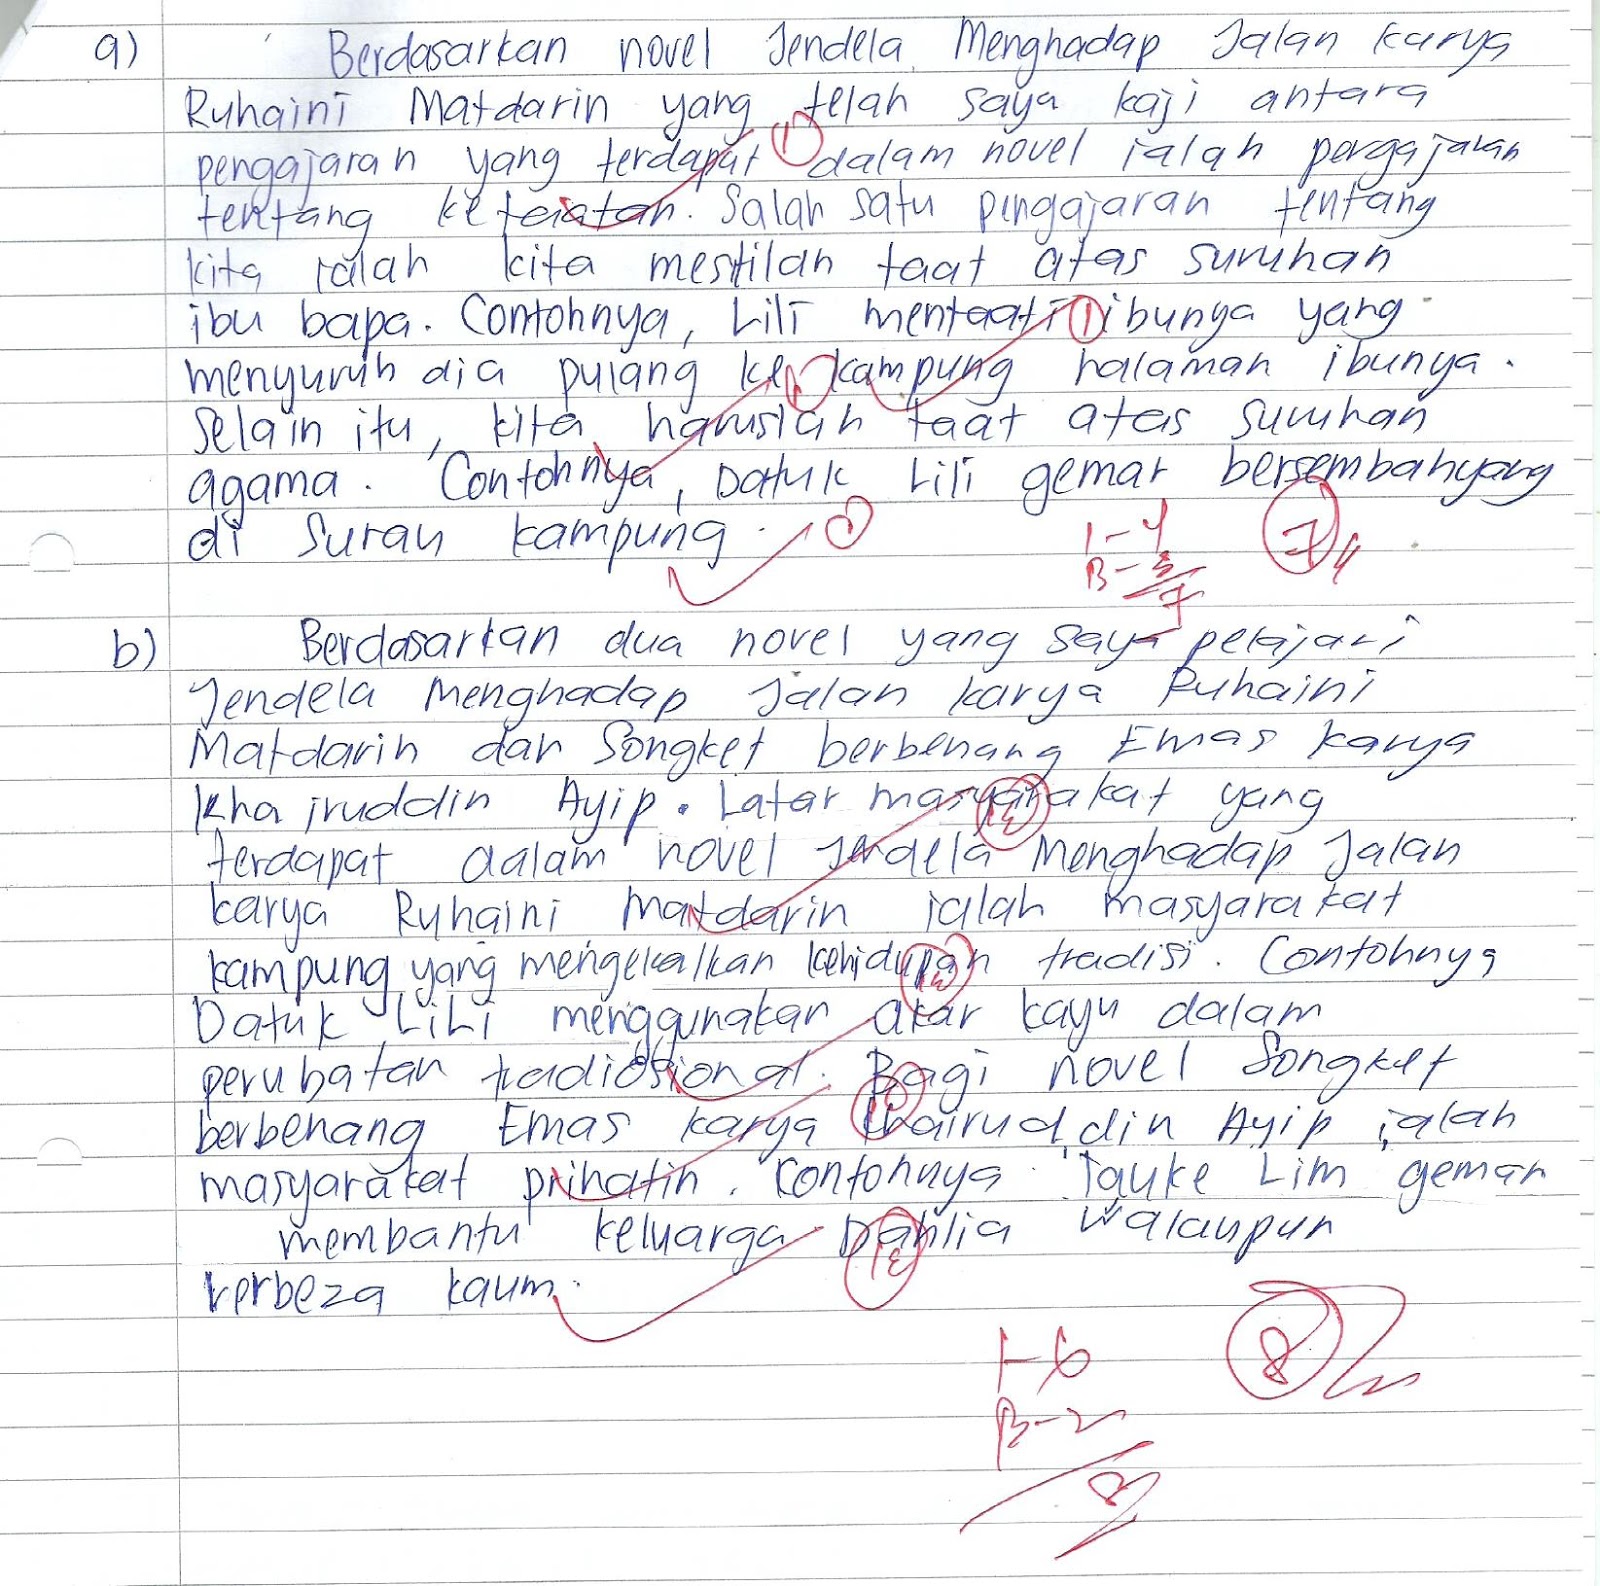 a) Berdasarkan novel Jendela Menghadap Jalan karya
Ruhaini Matdarin yang telah saya kaji antara
pengajaran yang terdapat 1 dalam novel ialah pengajaran
tentang Salah satu pengajaran tentang
kita ialah kita mestilah taat atas suruhan
ibu bapa. Contohnya, Lili mentaati 1 ibunya yang
menyuruh dia pulang ke 1 kampung halaman ibunya.
Selain itu, kita haruslah taat atas suruhan
agama. Contohnya, Datuk Lili gemar bersembahyang
di Surau kampung. 1
1-4 7
B-3
7
b) Berdasarkan dua novel yang saya pelajari
Jendela Menghadap Jalan karya Ruhaini
Matdarin dan Songket berbenang Emas karya
Khairuddin Ayip. Latar masyarakat yang
terdapat dalam novel Jendela Menghadap Jalan
karya Ruhaini Matdarin ialah masyarakat
kampung yang mengekalkan kehidupan tradisi. Contohnya
Datuk LiLi menggunakan akar kayu dalam
perubatan tradiosional. Bagi novel Songket
berbenang Emas karya Khairuddin Ayip ialah
masyarakat prihatin. Contohnya Tauke Lim gemar
membantu keluarga Dahlia walaupun
berbeza kaum.
1-6 8
B-2
8